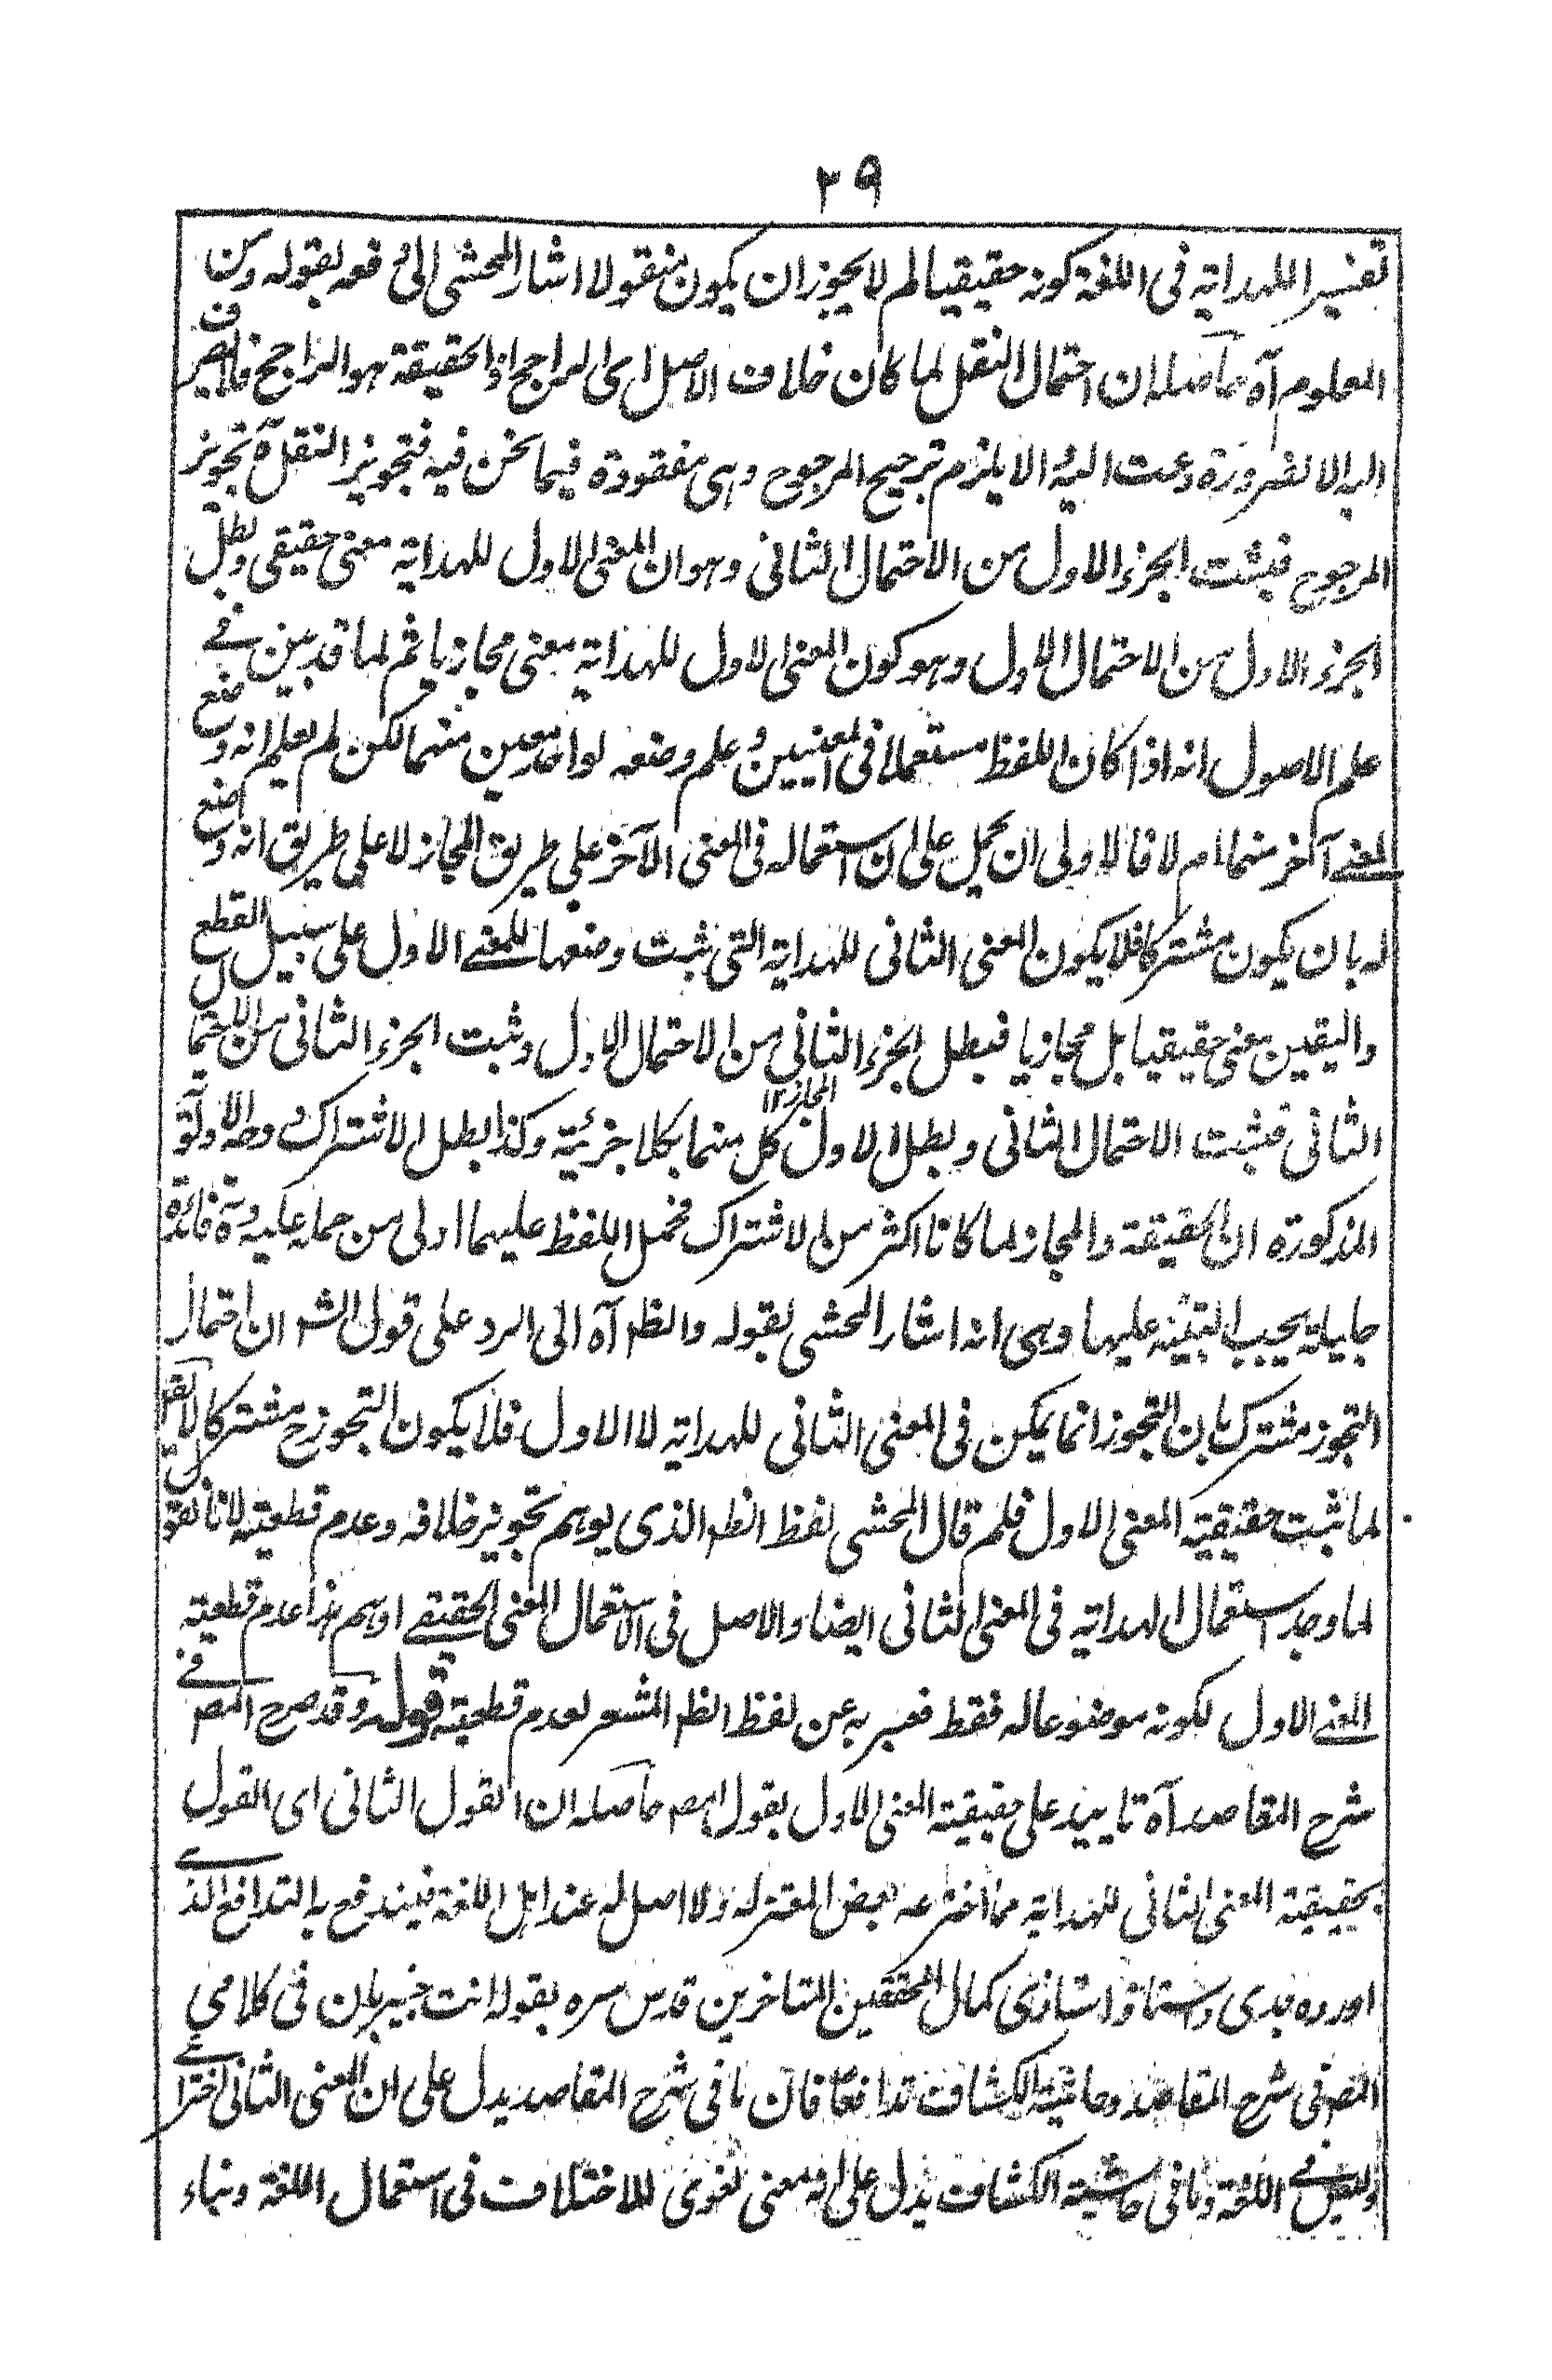 ٢٩
تفسير اللهداية فى اللغة كونه حقيقيا لم لا يجوز ان يكون منقولا اشار المحشى الى دفعه بقوله ومن
المعلوم آه حاصله ان احتمال النقل لما كان خلاف الاصل اى الراجح اذ الحقيقة هو الراجح فلا يصرف
اليه الا لضرورة دعت اليه والا يلزم ترجيح المرجوح وهى مفقودة فيما نحن فيه فتجويز النقل ح تجويز
المرجوح فيثبت الجزء الاول من الاحتمال الثانى وهو ان المعنى الاول للهداية معنى حقيقى وبطل
الجزء الاول من الاحتمال الاول وهو كون المعنى الاول للهداية معنى مجازيا ثم لما قد بين فے
علم الاصول انه اذا كان اللفظ مستعملا فى المعنيين وعلم وضعه لواحد معين منهما لكن لم يعلم انه وضع
لمعنے آخر منهما ام لا فالاولى ان يحمل على ان استعماله فى المعنى الآخر على طريق المجاز لا على طريق انه وضع
له بان يكون مشتركا فلا يكون المعنى الثانى للهداية التى ثبت وضعها للمعنے الاول على سبيل القطع
واليقين معنى حقيقيا بل مجازيا فبطل الجزء الثانى من الاحتمال الاول وثبت الجزء الثانى من الاحتمال
الثانى فثبت الاحتمال الثانى وبطل الاول كل منهما بكلا جزئيه وكذا بطل الاشتراك وجه الاولوية
المجاز ١٢
المذكورة ان الحقيقة والمجاز لما كانا اكثر من الاشتراك فحمل اللفظ عليهما اولى من حمله عليه وة فائدة
جليلة يجب التنبيه عليها وهى انه اشار المحشى بقوله والظ آه الى الرد على قول الش ان احتمال
التجوز مشترك بان التجوز انما يمكن فى المعنى الثانى للهداية لا الاول فلا يكون التجوز ح مشتركا لا يقال
لما ثبت حقيقية المعنى الاول فلم قال المحشى لفظ الظ الذى يوهم تجويز خلافه وعدم قطعيته لانا نقول
لما وجد استعمال الهداية فى المعنى الثانى ايضا والاصل فى الاستعمال المعنى الحقيقے اوهم هذا عدم قطعيته
المعنے الاول لكونه موضوعا له فقط فعبر به عن لفظ الظ المشعر لعدم قطعيته قوله وقد صرح المص فے
شرح المقاصد آه تاييد على حقيقية المعنى الاول بقول المص حاصله ان القول الثانى اى القول
بحقيقية المعنى الثانى للهداية مما اخترعه بعض المعتزلة ولا اصل له عند اهل اللغة فيندفع به التدافع الذے
اورده جدى واستاذ استاذى كمال المحققين المتاخرين قدس سره بقوله انت خبير بان فى كلامى
المص فى شرح المقاصد وحاشية الكشاف تدافعا فان ما فى شرح المقاصد يدل على ان المعنى الثانى اختراعے
وليس فے اللغة وما فى حاشية الكشاف يدل على انه معنى لغوى للاختلاف فى استعمال اللغة وبناء